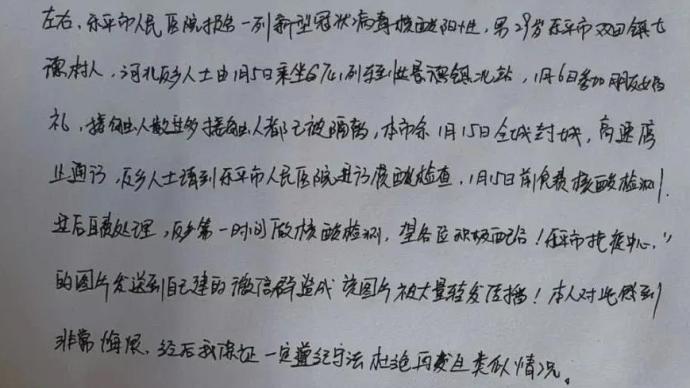 左右，乐平市人民医院报告一列新型冠状病毒核酸阳性，男29岁乐平市双田镇
村人，河北反乡人士由1月5日乘坐G 列车到景德镇北站，1月6日参加朋友婚
礼，接触人数 接触人都已被隔离，本市余1月15日全城封城，高速停
止通行，反乡人士请到乐平市人民医院进行核酸检查，1月15日前免费核酸检测，
过后自费处理，反乡第一时间做核酸检测，望各位积极配合！乐平市 中心，"
的图片发送到自己建的微信群造成该图片被大量转发传播！本人对此感到
非常悔恨、经后我保证一定遵纪守法杜绝再发生类似情况。